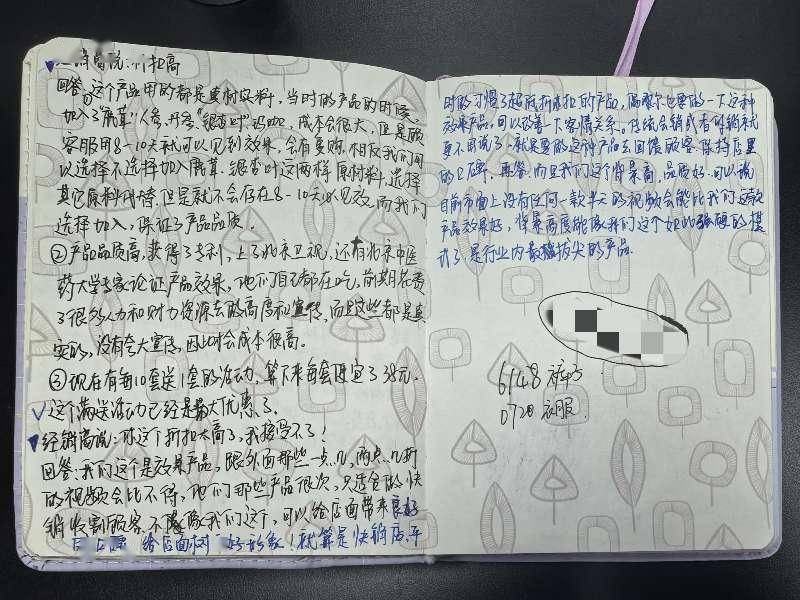 商说:折扣高
回答:①这个产品用的都是真材实料,当时的产品的时候,
加入了"鹿茸"人参,丹参,"银杏叶"
成本会很大,但是顾
客服用8-10天就可以见到效果,会有复购,相反我们可
以选择不选择加入鹿茸、银杏叶这两样原材料,选择
其它原料代替,但是就不会存在8-10天必见效,而我们
选择加入,保证了产品品质。
②产品品质高,获得了专利,上了北京卫视,还有北京中医
药大学专家论证产品效果,他们自己都在吃,前期花费
了很多人力和财力资源去做高度和宣传,而且这些都是真
实的,没有夸大宣传,因此对会成本很高。
③现在有每10套送1套的活动,算下来每套便宜了38元,
这个满送活动已经是最大优惠了。
经销商说:你这个折扣太高了,我接受不了!
回答:我们的这个是效果产品,跟外面那些一点几,两点几折
的视频会比不得,他们那些产品很次,只适合做快
销收割顾客,不像我们这个,可以给店面带来良好
给店面树 好形象!就算是快销店,平
时的习惯了超低折扣的产品,偶尔也要做一下这种
效果产品,可以改善一下客情关系。传统会销或者
就
更不用说了,就是要做这种产品去回馈顾客,保持店里
的口碑,再答:而且我们这个背景高,品质好,可以说
目前市面上没有任何一款
的视频会能比我们这款
产品效果好,背景高度能像我们这个如此强硬的模
式了,是行业内最拔尖的产品。
6148 裤子
0720 衣服